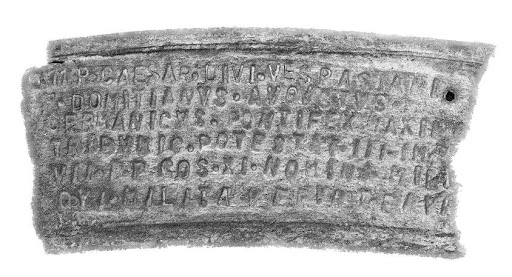 IMP·CAESAR·DIVI·VESPASIANI
F·DOMITIANVS·AVGVSTVS
GERMANICVS·PONTIFEX MAXIM
TRIBVNIC·POTESTAT·III·IM
P·P·COS·XI·NOMINA
QVI·MILITAVERVNT